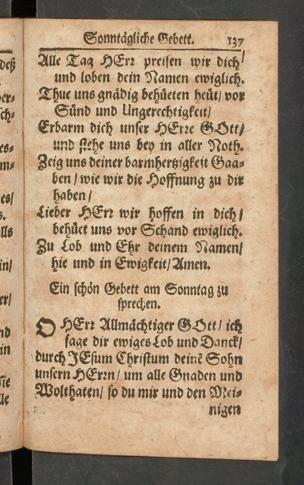 Sonntägliche Gebett. 137
Alle Tag HErr preisen wir dich/
und loben dein Namen ewiglich.
Thue uns gnädig behüeten heüt/ vor
Sünd und Ungerechtigkeit/
Erbarm dich unser HErre GOtt/
und stehe uns bey in aller Noth.
Zeig uns deiner barmhertzigkeit Gaa-
ben/ wie wir die Hoffnung zu dir
haben/
Lieber HErr wir hoffen in dich/
behüet uns vor Schand ewiglich.
Zu Lob und Ehr deinem Namen/
hie und in Ewigkeit/ Amen.
Ein schön Gebett am Sonntag zu
sprechen.
O HErr Allmächtiger GOtt/ ich
sage dir ewiges Lob und Danck/
durch JEsum Christum deinē Sohn
unsern HErrn/ um alle Gnaden und
Wolthaten/ so du mir und den Mei-
nigen